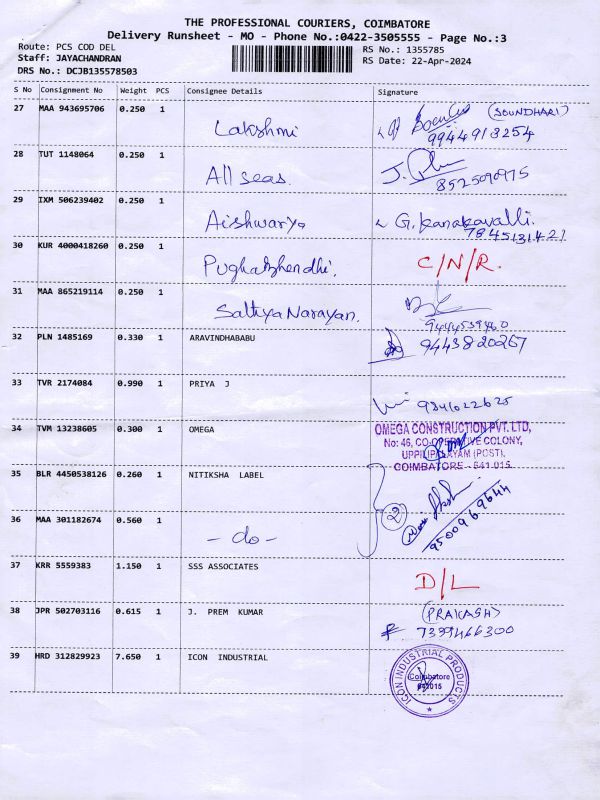 THE PROFESSIONAL COURIERS, COIMBATORE
Delivery Runsheet - MO - Phone No.:0422-3505555 - Page No.:3
Route: PCS COD DEL
RS No.: 1355785
Staff: JAYACHANDRAN
RS Date: 22-Apr-2024
DRS No.: DCJB135578503
S No Consignment No Weight PCS Consignee Details Signature
27 MAA 943695706 0.250 1 Lakshmi (SOUNDHARI)
9944913254
28 TUT 1148064 0.250 1 All seas. J.
8525090975
29 IXM 506239402 0.250 1 Aishwarya G. Kanakavalli.
7845131421
30 KUR 4000418260 0.250 1 Pughazhendhi. C/N/R.
31 MAA 865219114 0.250 1 Sathya Narayan.
9444539460
32 PLN 1485169 0.330 1 ARAVINDHABABU 9443820267
33 TVR 2174084 0.990 1 PRIYA J 9341022625
34 TVM 13238605 0.300 1 OMEGA OMEGA CONSTRUCTION PVT. LTD,
No: 46, CO-OPERATIVE COLONY,
UPPILIPALAYAM (POST),
COIMBATORE - 641 015.
35 BLR 4450538126 0.260 1 NITIKSHA LABEL
36 MAA 301182674 0.560 1 - do - 2 9500969644
37 KRR 5559383 1.150 1 SSS ASSOCIATES D/L
38 JPR 502703116 0.615 1 J. PREM KUMAR (PRAKASH)
7399466300
39 HRD 312829923 7.650 1 ICON INDUSTRIAL ICON INDUSTRIAL PRODUCTS
Coimbatore
641015